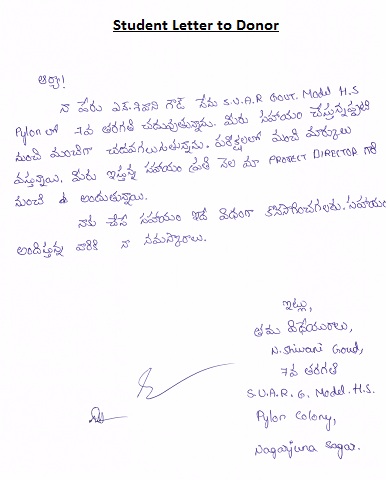 Student Letter to Donor
ఆర్యా!
నా పేరు ఎన్.శివాని గౌడ్ నేను S.U.A.R GOVT. Model H.S
Pylon లో 7వ తరగతి చదువుతున్నాను. మీరు సహాయం చేస్తున్నప్పటి
నుంచి మంచిగా చదవగలుగుతున్నాను. పరీక్షలలో మంచి మార్కులు
వస్తున్నాయి. మీరు ఇస్తున్న సహాయం ప్రతి నెల మా PROJECT DIRECTOR గారి
నుంచి అందుతున్నాయి.
నాకు చేసే సహాయం ఇదే విధంగా కొనసాగించగలరు. సహాయం
అందిస్తున్న వారికి నా నమస్కారాలు.
ఇట్లు,
తమ విధేయురాలు,
N. Shivani Goud,
7వ తరగతి
S.U.A.R. G. Model. H.S.
Pylon Colony,
Nagarjuna Sagar.